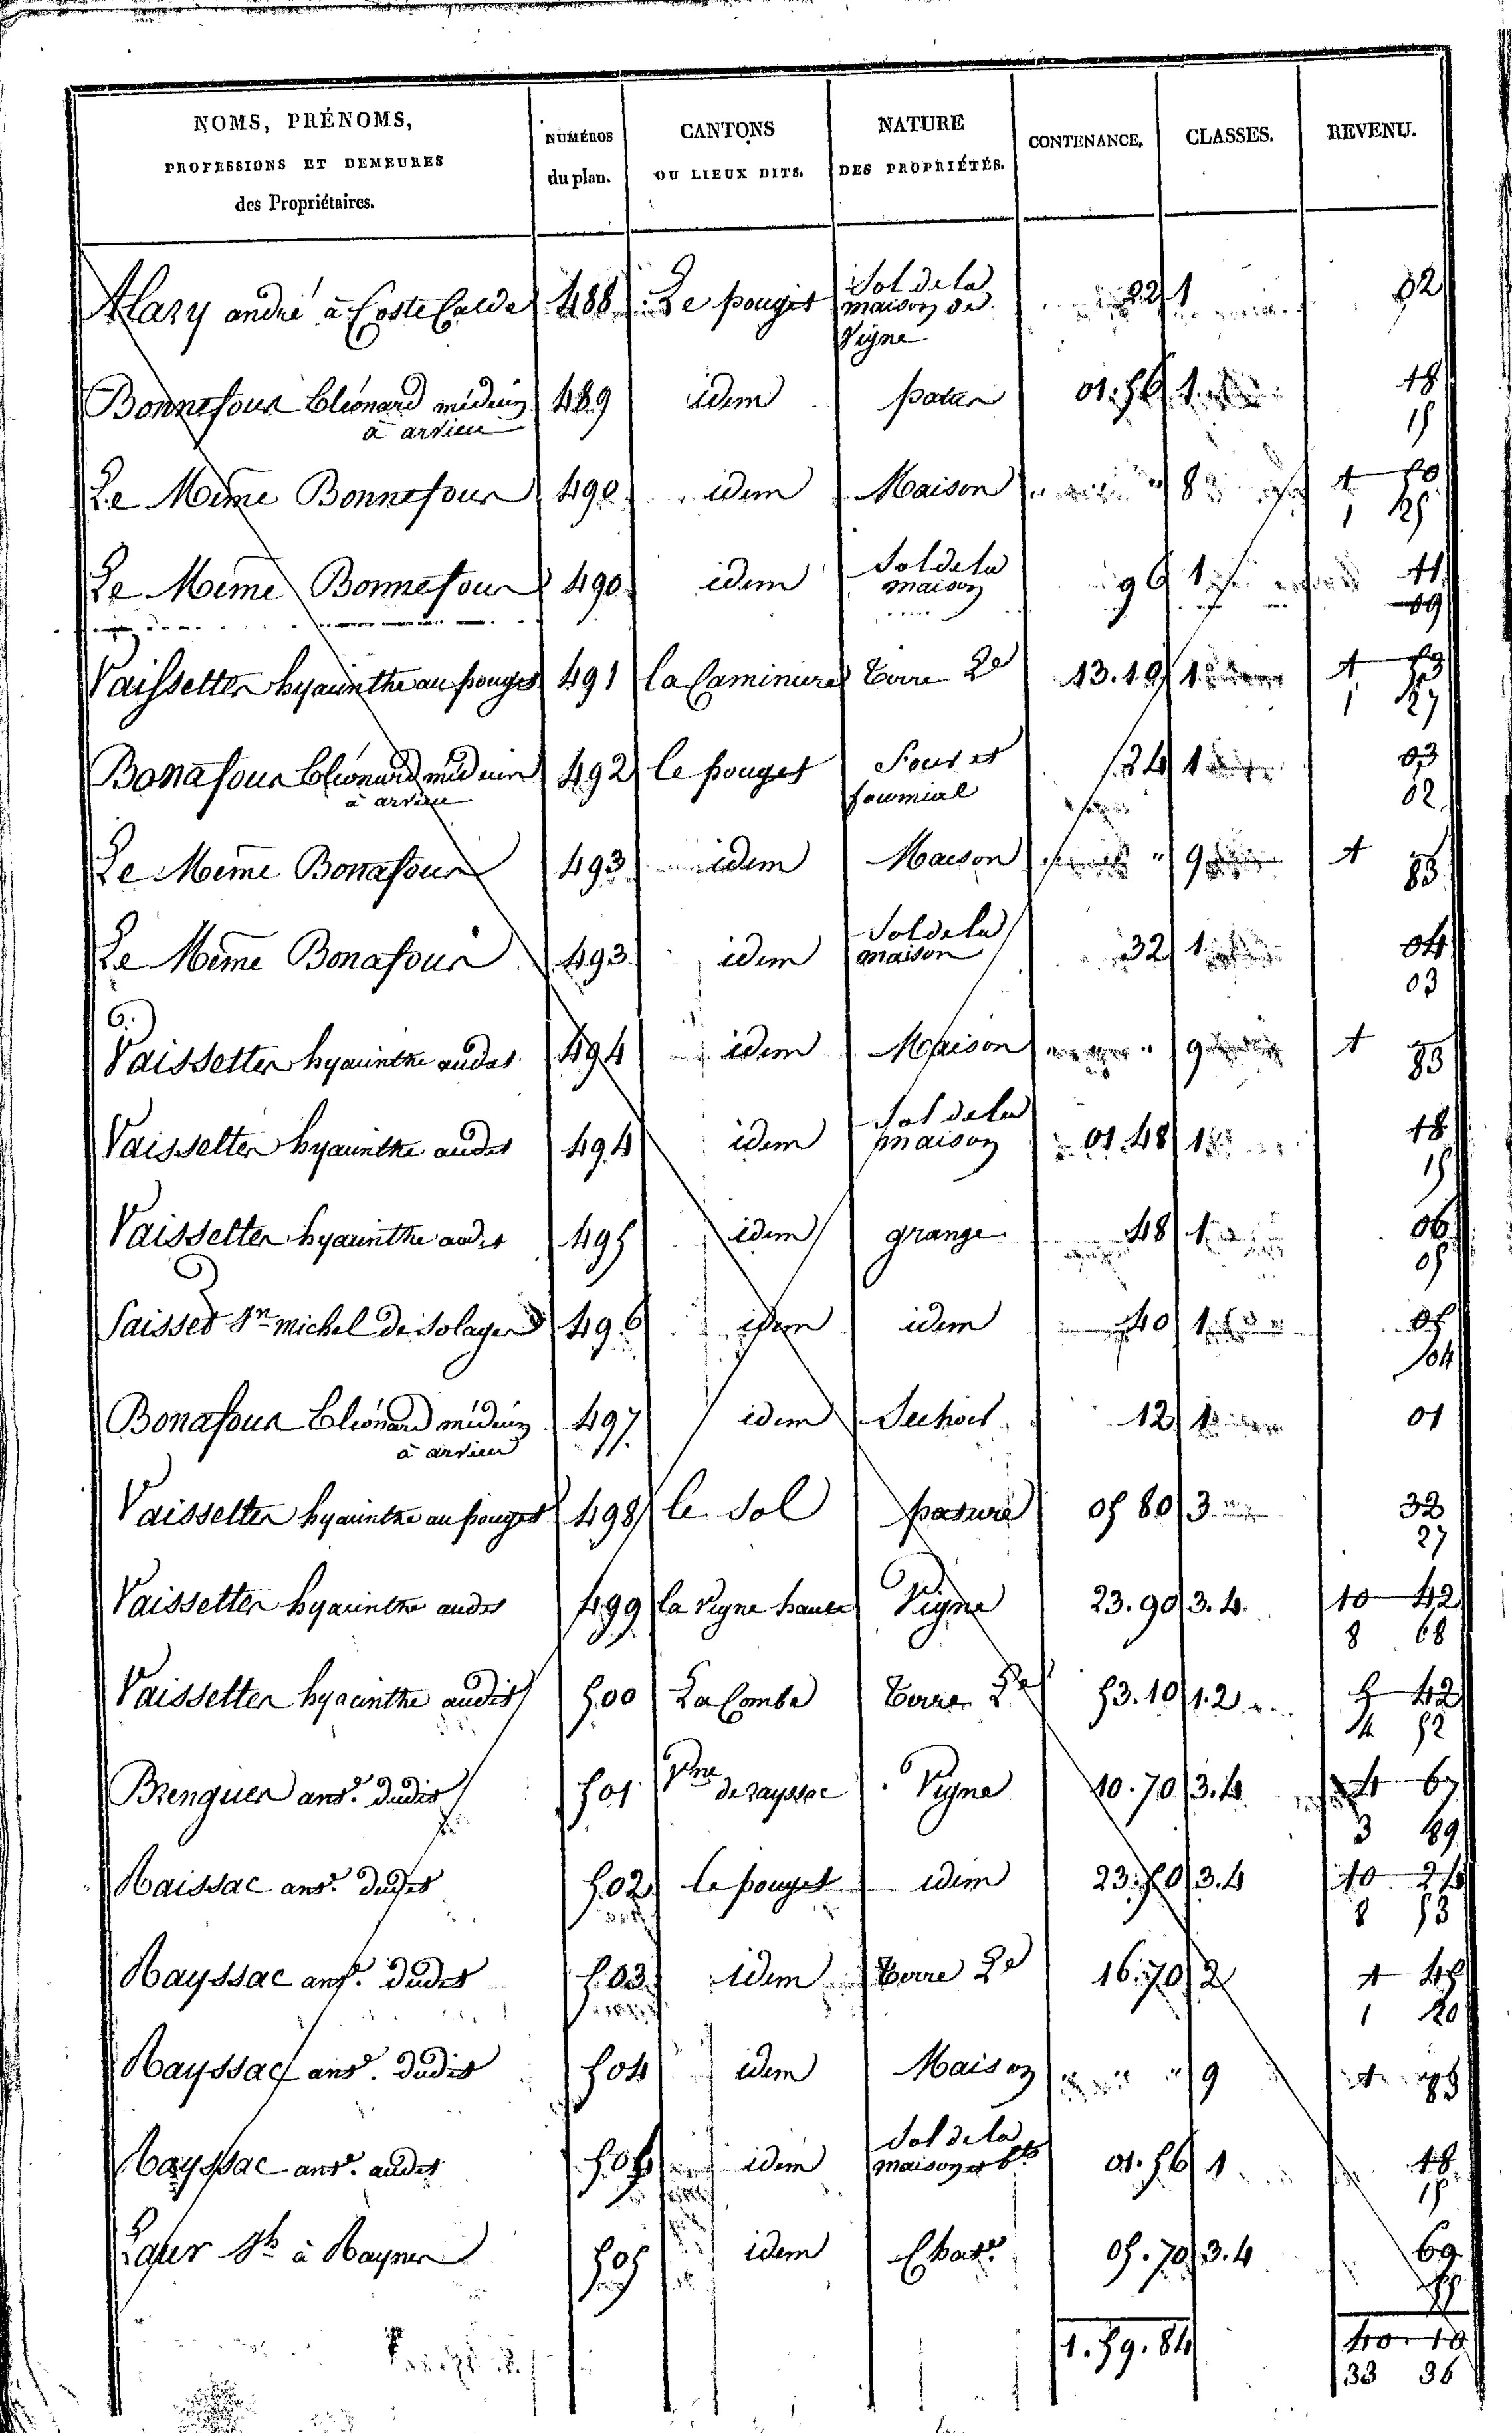 NOMS, PRÉNOMS, PROFESSIONS ET DEMEURES des Propriétaires. NUMÉROS du plan. CANTONS OU LIEUX DITS. NATURE DES PROPRIÉTÉS. CONTENANCE. CLASSES. REVENU.
Alary andré à Coste Calde 488 Le pouget Sol de la maison de Vigne 22 1 02
Bonnefour Bléonard médecin à arvieu 489 idem patur 01.56 1 18
15
Le Meme Bonnefour 490 idem Maison " 8 1 50
1 25
Le Meme Bonnefour 490 idem Sol de la maison 96 1 11
09
Vaissettes hyacinthe au pouget 491 la Caminiere Terre Le 13.10 1 1 53
1 27
Bonafour Bléonard médecin à arvieu 492 le pouget Four et fournial 24 1 03
02
Le Meme Bonafour 493 idem Maison " 9 1
83
Le Meme Bonafour 493 idem Sol de la maison 32 1 04
03
Vaissettes hyacinthe audit 494 idem Maison " 9 1
83
Vaissettes hyacinthe audit 494 idem Sol de la maison 01.48 1 18
15
Vaissettes hyacinthe audit 495 idem grange 48 1 06
05
Saisset Jn michel de Solages 496 idem idem 40 1 05
04
Bonafour Bléonard médecin à arvieu 497 idem Sechoir 12 1 01
Vaissettes hyacinthe au pouget 498 le Sol pature 05 80 3 32
27
Vaissettes hyacinthe audit 499 la Vigne haute Vigne 23.90 3.4. 10 42
8 68
Vaissettes hyacinthe audit 500 La Combe Terre Le 53.10 1.2 5 42
4 52
Brenguer ant. dudit 501 Vne de rayssac Vigne 10.70 3.4 4 67
3 89
Raissac ant. dudit 502 le pouget idem 23.50 3.4 10 24
8 53
Rayssac ant. dudit 503 idem Terre Le 16.70 2 1 45
1 20
Rayssac ant. dudit 504 idem Maison " 9 1
83
Rayssac ant. audit 504 idem Sol de la maison et bt 01.56 1 18
15
Laur Jh à Rayner 505 idem Chatr 05.70 3.4 69
1.59.84 40 10
33 36